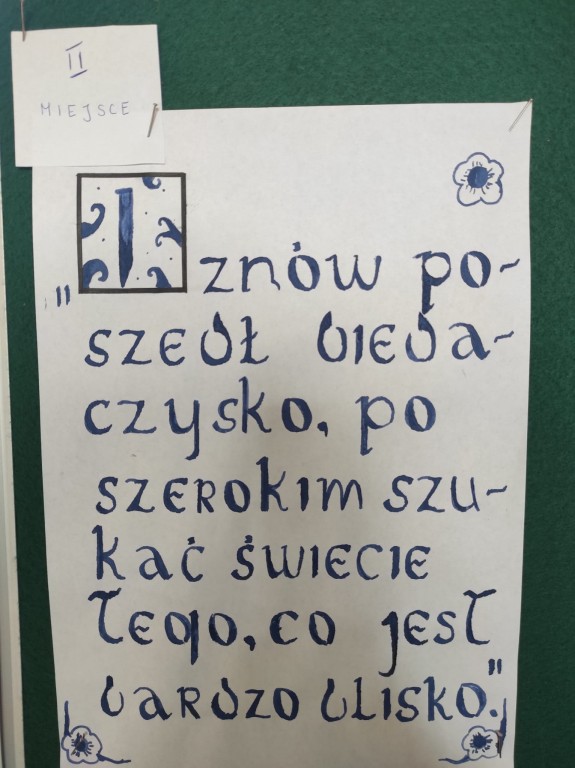 II
MIEJSCE
"I znów po-
szedł bieda-
czysko, po
szerokim szu-
kać świecie
tego, co jest
bardzo blisko."